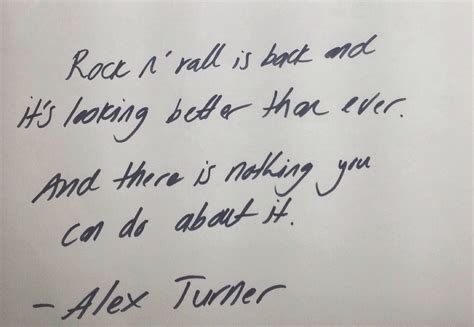 Rock n' rall is back and
it's looking better than ever.
And there is nothing you
can do about it.
- Alex Turner